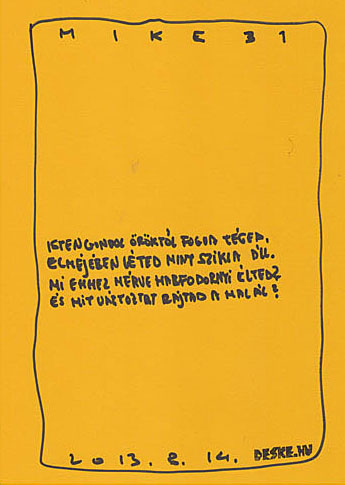 MIKE 31
ISTEN GONDOL ÖRÖKTŐL FOGVA TÉGED,
ELMÉJÉBEN LÉTED MINT SZIKLA ÁLL.
MI EHHEZ MÉRVE HABFODORNYI ÉLTED?
ÉS MIT VÁLTOZTAT RAJTAD A HALÁL?
2013. 8. 14. DESKE.HU